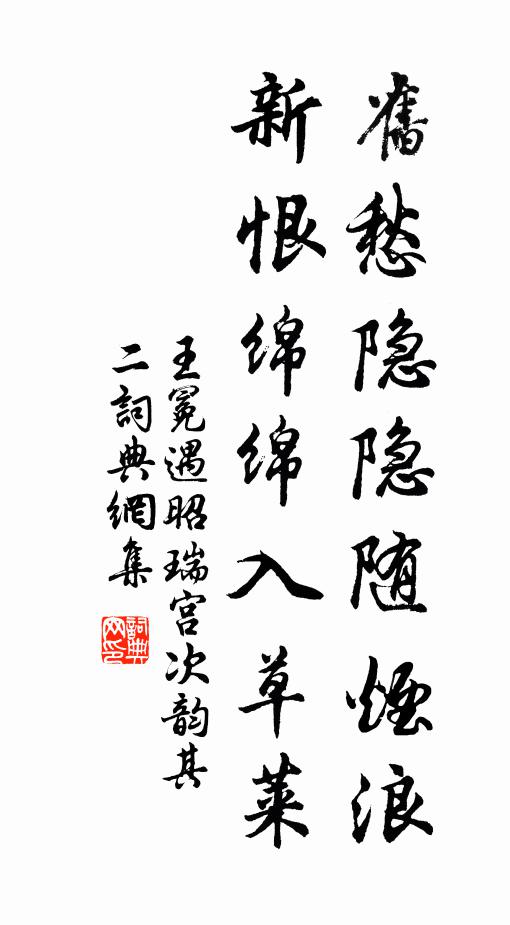 舊愁隐隐随煙浪
新恨绵绵入草萊
王冕遇昭瑞宫次韵其
二詞典網集
詞典网印